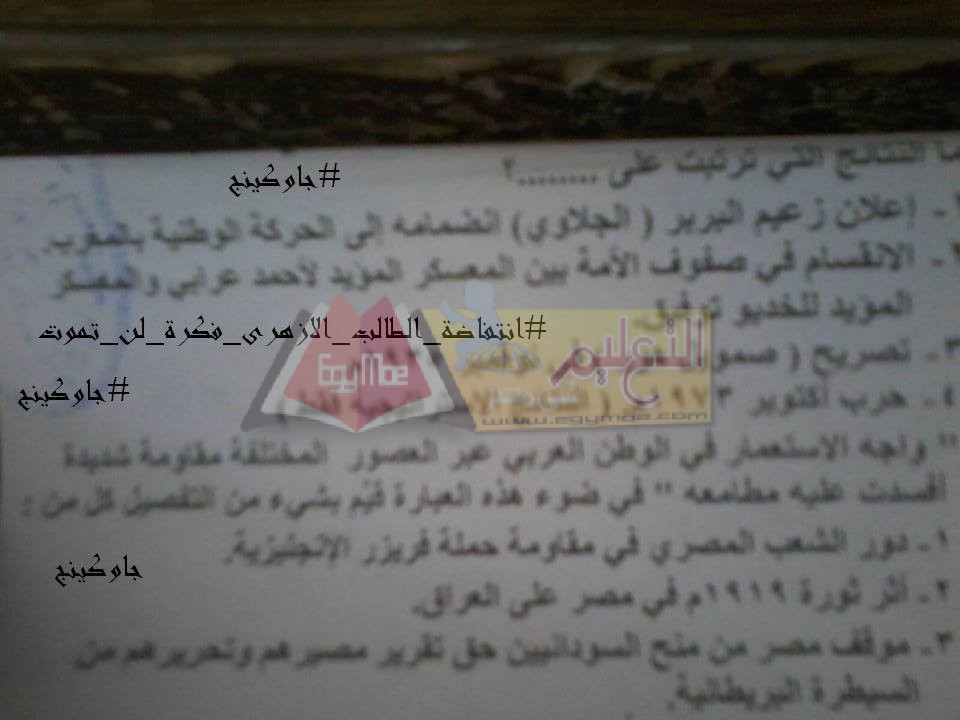 ما النتائج التي ترتبت على ..........؟
#جاوكينج
إعلان زعيم البربر ( الجلاوي) انضمامه إلى الحركة الوطنية بالمغرب.
الانقسام في صفوف الأمة بين المعسكر المؤيد لأحمد عرابي والمعسكر
المؤيد للخديو توفيق.
#انتفاضة_الطالب_الازهرى_فكرة_لن_تموت
٣- تصريح ( صمويل
#جاوكينج
٤- حرب أكتوبر ١٩٧٣م (
التعليم
EgyMoe
www.egymoe.com
" واجه الاستعمار في الوطن العربي عبر العصور المختلفة مقاومة شديدة
أفسدت عليه مطامعه " في ضوء هذه العبارة قيّم بشيء من التفصيل كل من :
١- دور الشعب المصري في مقاومة حملة فريزر الإنجليزية.
جاوكينج
٢- أثر ثورة ١٩١٩م في مصر على العراق.
٣- موقف مصر من منح السودانيين حق تقرير مصيرهم وتحريرهم من
السيطرة البريطانية.